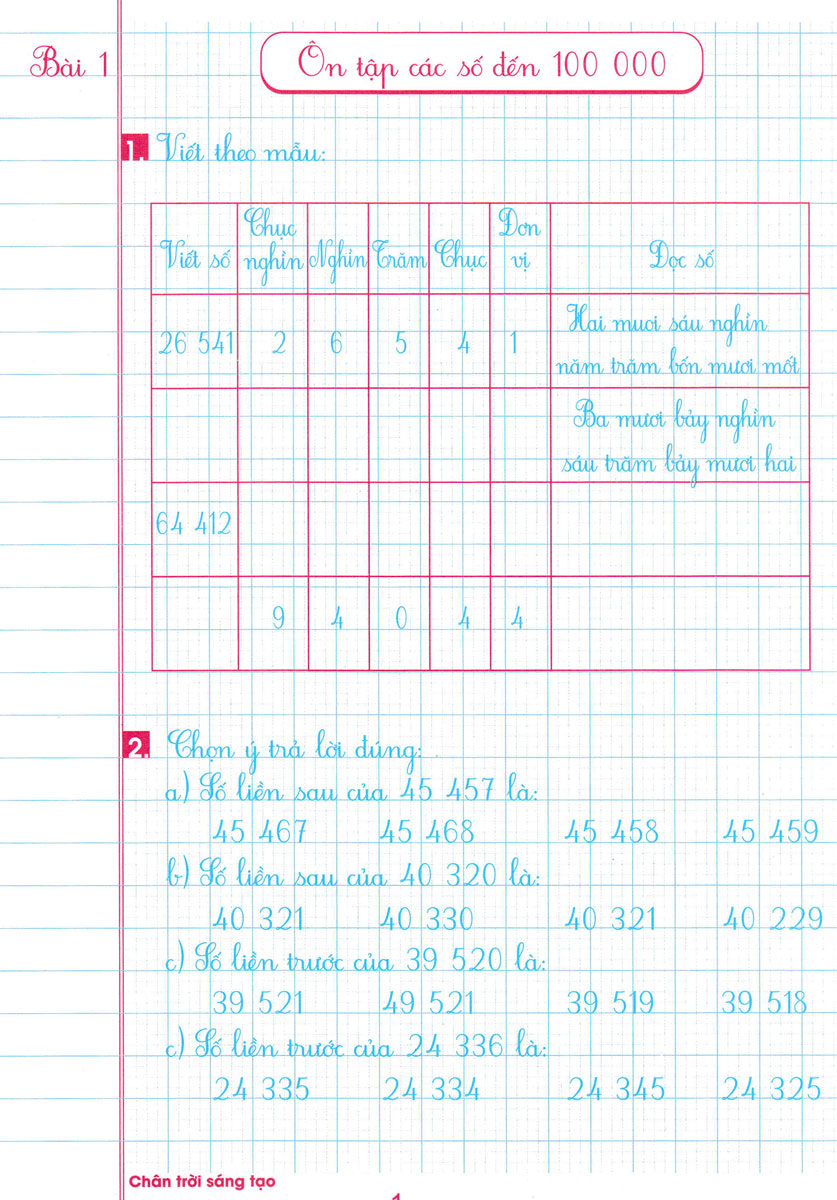 Bài 1
Ôn tập các số đến 100 000
1. Viết theo mẫu:
Viết số | Chục nghìn | Nghìn | Trăm | Chục | Đơn vị | Đọc số
26 541 | 2 | 6 | 5 | 4 | 1 | Hai mươi sáu nghìn năm trăm bốn mươi mốt
Ba mươi bảy nghìn sáu trăm bảy mươi hai
64 412
9 | 4 | 0 | 4 | 4
2. Chọn ý trả lời đúng:
a) Số liền sau của 45 457 là:
45 467 45 468 45 458 45 459
b) Số liền sau của 40 320 là:
40 321 40 330 40 321 40 229
c) Số liền trước của 39 520 là:
39 521 49 521 39 519 39 518
c) Số liền trước của 24 336 là:
24 335 24 334 24 345 24 325
Chân trời sáng tạo